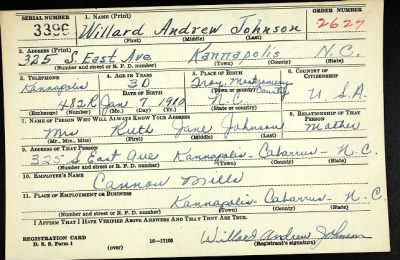 SERIAL NUMBER 1. NAME (Print) ORDER NUMBER
3396 Willard Andrew Johnson 2627
(First) (Middle) (Last)
2. ADDRESS (Print)
325 S. East Ave Kannapolis N.C.
(Number and street or R. F. D. number) (Town) (County) (State)
3. TELEPHONE 4. AGE IN YEARS 5. PLACE OF BIRTH 6. COUNTRY OF CITIZENSHIP
Kannapolis 30 Troy, Montgomery
DATE OF BIRTH (Town or county) County
482R Jan 7 1910 N.C. U.S.A.
(Exchange) (Number) (Mo.) (Day) (Yr.) (State or country)
7. NAME OF PERSON WHO WILL ALWAYS KNOW YOUR ADDRESS 8. RELATIONSHIP OF THAT PERSON
Mrs Ruth Jane Johnson Mother
(Mr., Mrs., Miss) (First) (Middle) (Last)
9. ADDRESS OF THAT PERSON
325 S East Ave Kannapolis - Cabarrus - N.C.
(Number and street or R. F. D. number) (Town) (County) (State)
10. EMPLOYER'S NAME
Cannon Mills
11. PLACE OF EMPLOYMENT OR BUSINESS
Kannapolis - Cabarrus - N.C.
(Number and street or R. F. D. number) (Town) (County) (State)
I AFFIRM THAT I HAVE VERIFIED ABOVE ANSWERS AND THAT THEY ARE TRUE.
REGISTRATION CARD
D. S. S. Form 1 (over) 16—17105 Willard Andrew Johnson
(Registrant's signature)